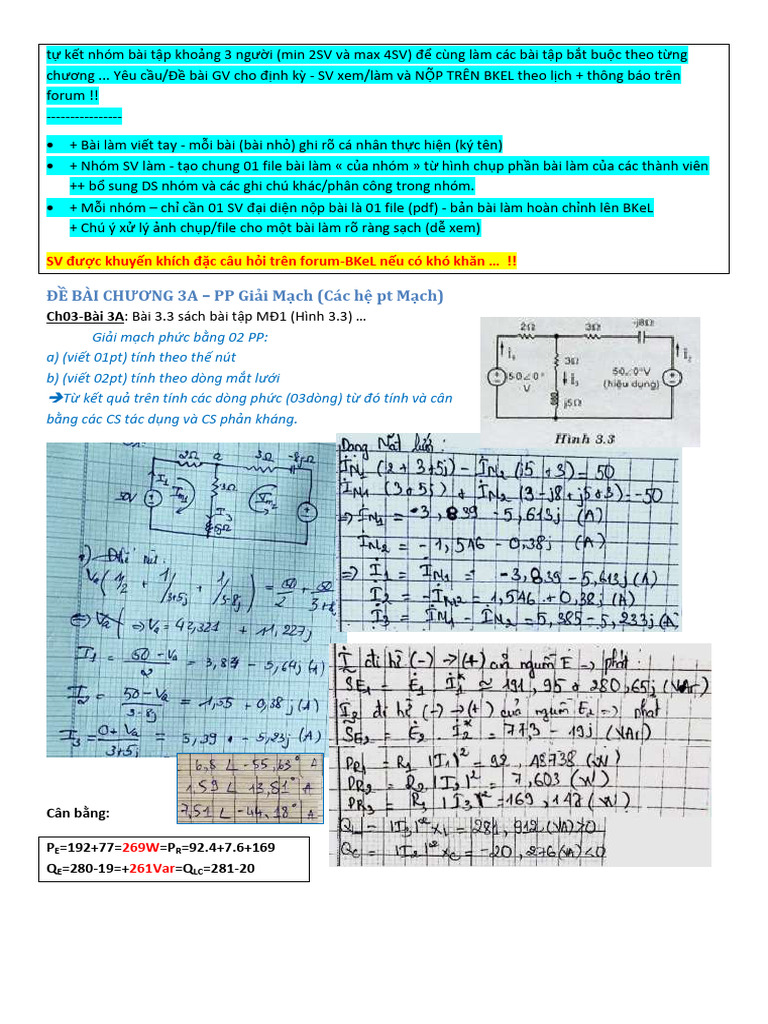 tự kết nhóm bài tập khoảng 3 người (min 2SV và max 4SV) để cùng làm các bài tập bắt buộc theo từng
chương ... Yêu cầu/Đề bài GV cho định kỳ - SV xem/làm và NỘP TRÊN BKEL theo lịch + thông báo trên
forum !!
----------------
• + Bài làm viết tay - mỗi bài (bài nhỏ) ghi rõ cá nhân thực hiện (ký tên)
• + Nhóm SV làm - tạo chung 01 file bài làm « của nhóm » từ hình chụp phần bài làm của các thành viên
++ bổ sung DS nhóm và các ghi chú khác/phân công trong nhóm.
• + Mỗi nhóm – chỉ cần 01 SV đại diện nộp bài là 01 file (pdf) - bản bài làm hoàn chỉnh lên BKeL
+ Chú ý xử lý ảnh chụp/file cho một bài làm rõ ràng sạch (dễ xem)
SV được khuyến khích đặc câu hỏi trên forum-BKeL nếu có khó khăn ... !!
ĐỀ BÀI CHƯƠNG 3A – PP Giải Mạch (Các hệ pt Mạch)
Ch03-Bài 3A: Bài 3.3 sách bài tập MĐ1 (Hình 3.3) ...
Giải mạch phức bằng 02 PP:
a) (viết 01pt) tính theo thế nút
b) (viết 02pt) tính theo dòng mắt lưới
➔Từ kết quả trên tính các dòng phức (03dòng) từ đó tính và cân
bằng các CS tác dụng và CS phản kháng.
2Ω 3Ω -j8Ω
İ₁ 3Ω İ₂
50∠0° V İ₃ 50∠0°V
(hiệu dụng)
j5Ω
Hình 3.3
2Ω a 3Ω -8jΩ
I₁ 3Ω
50V Im₁ I₃ Im₂
5jΩ
a) Thế nút:
Va (1/2 + 1/3+5j + 1/3-8j) = 50/2 + 50/3+8j
⇒ Va = 42,321 + 11,227j
I₁ = 50-Va/2 = 3,84 - 5,64j (A)
I₂ = 50-Va/3-8j = 1,55 + 0,38j (A)
I₃ = 0+Va/3+5j = 5,39 - 5,23j (A)
Dòng Mắt lưới:
İM₁ (2+3+5j) - İM₂ (j5+3) = 50
İM₁ (3+5j) + İM₂ (3-j8+j5+3) = -50
⇒ İM₁ = -3,839 - 5,613j (A)
İM₂ = -1,546 - 0,38j (A)
⇒ İ₁ = İM₁ = -3,839 - 5,613j (A)
İ₂ = -İM₂ = 1,546 + 0,38j (A)
İ₃ = İM₁ - İM₂ = 5,385 - 5,233j (A)
İ đi từ (-) → (+) của nguồn E ⇒ phát:
SE₁ = Ė₁ . İ₁* ≃ 191,95 + 280,65j (VAr)
İ₂ đi từ (-) → (+) của nguồn E₂ ⇒ phát
SE₂ = Ė₂ . İ₂* = 77,3 - 19j (VAr)
PR₁ = R₁ |I₁|² = 92,48738 (W)
PR₂ = R₂ |I₂|² = 7,603 (W)
PR₃ = R₃ |I₃|² = 169,147 (W)
QL = |I₃|² XL = 281,912 (VA) > 0
QC = |I₂|² XC = -20,276 (VA) < 0
6,8 ∠ -55,63° A
1,59 ∠ 13,81° A
7,51 ∠ -44,18° A
Cân bằng:
PE=192+77=269W=PR=92.4+7.6+169
QE=280-19=+261Var=QLC=281-20